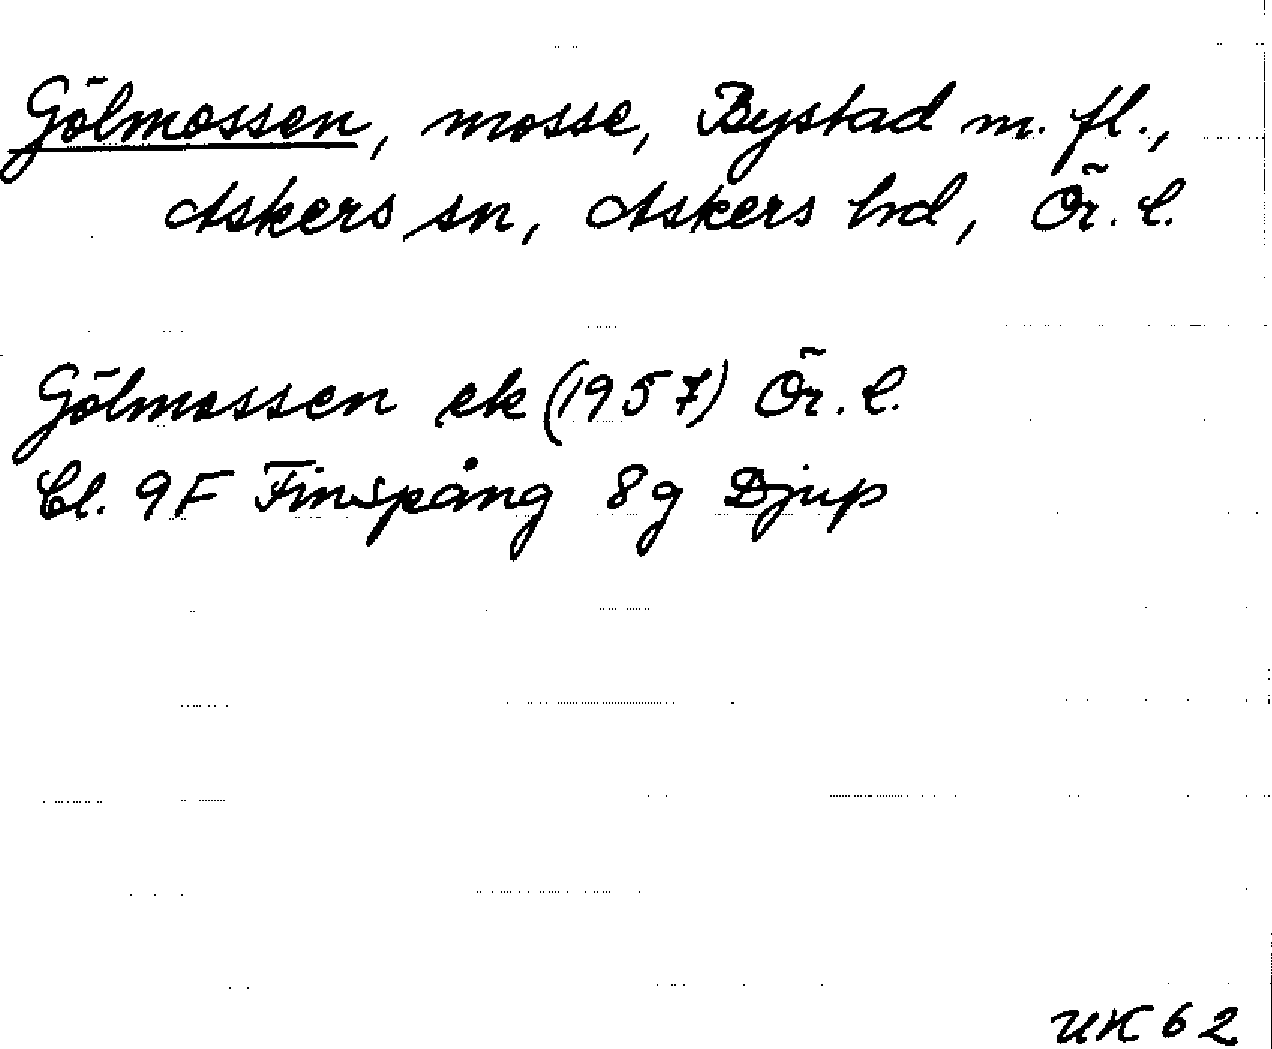 Gölmossen, mosse, Bystad m. fl.,
Askers sn, Askers hd, Ör. l.
Gölmossen ek (1957) Ör. l.
Bl. 9F Finspång 8g Djup
UK 62